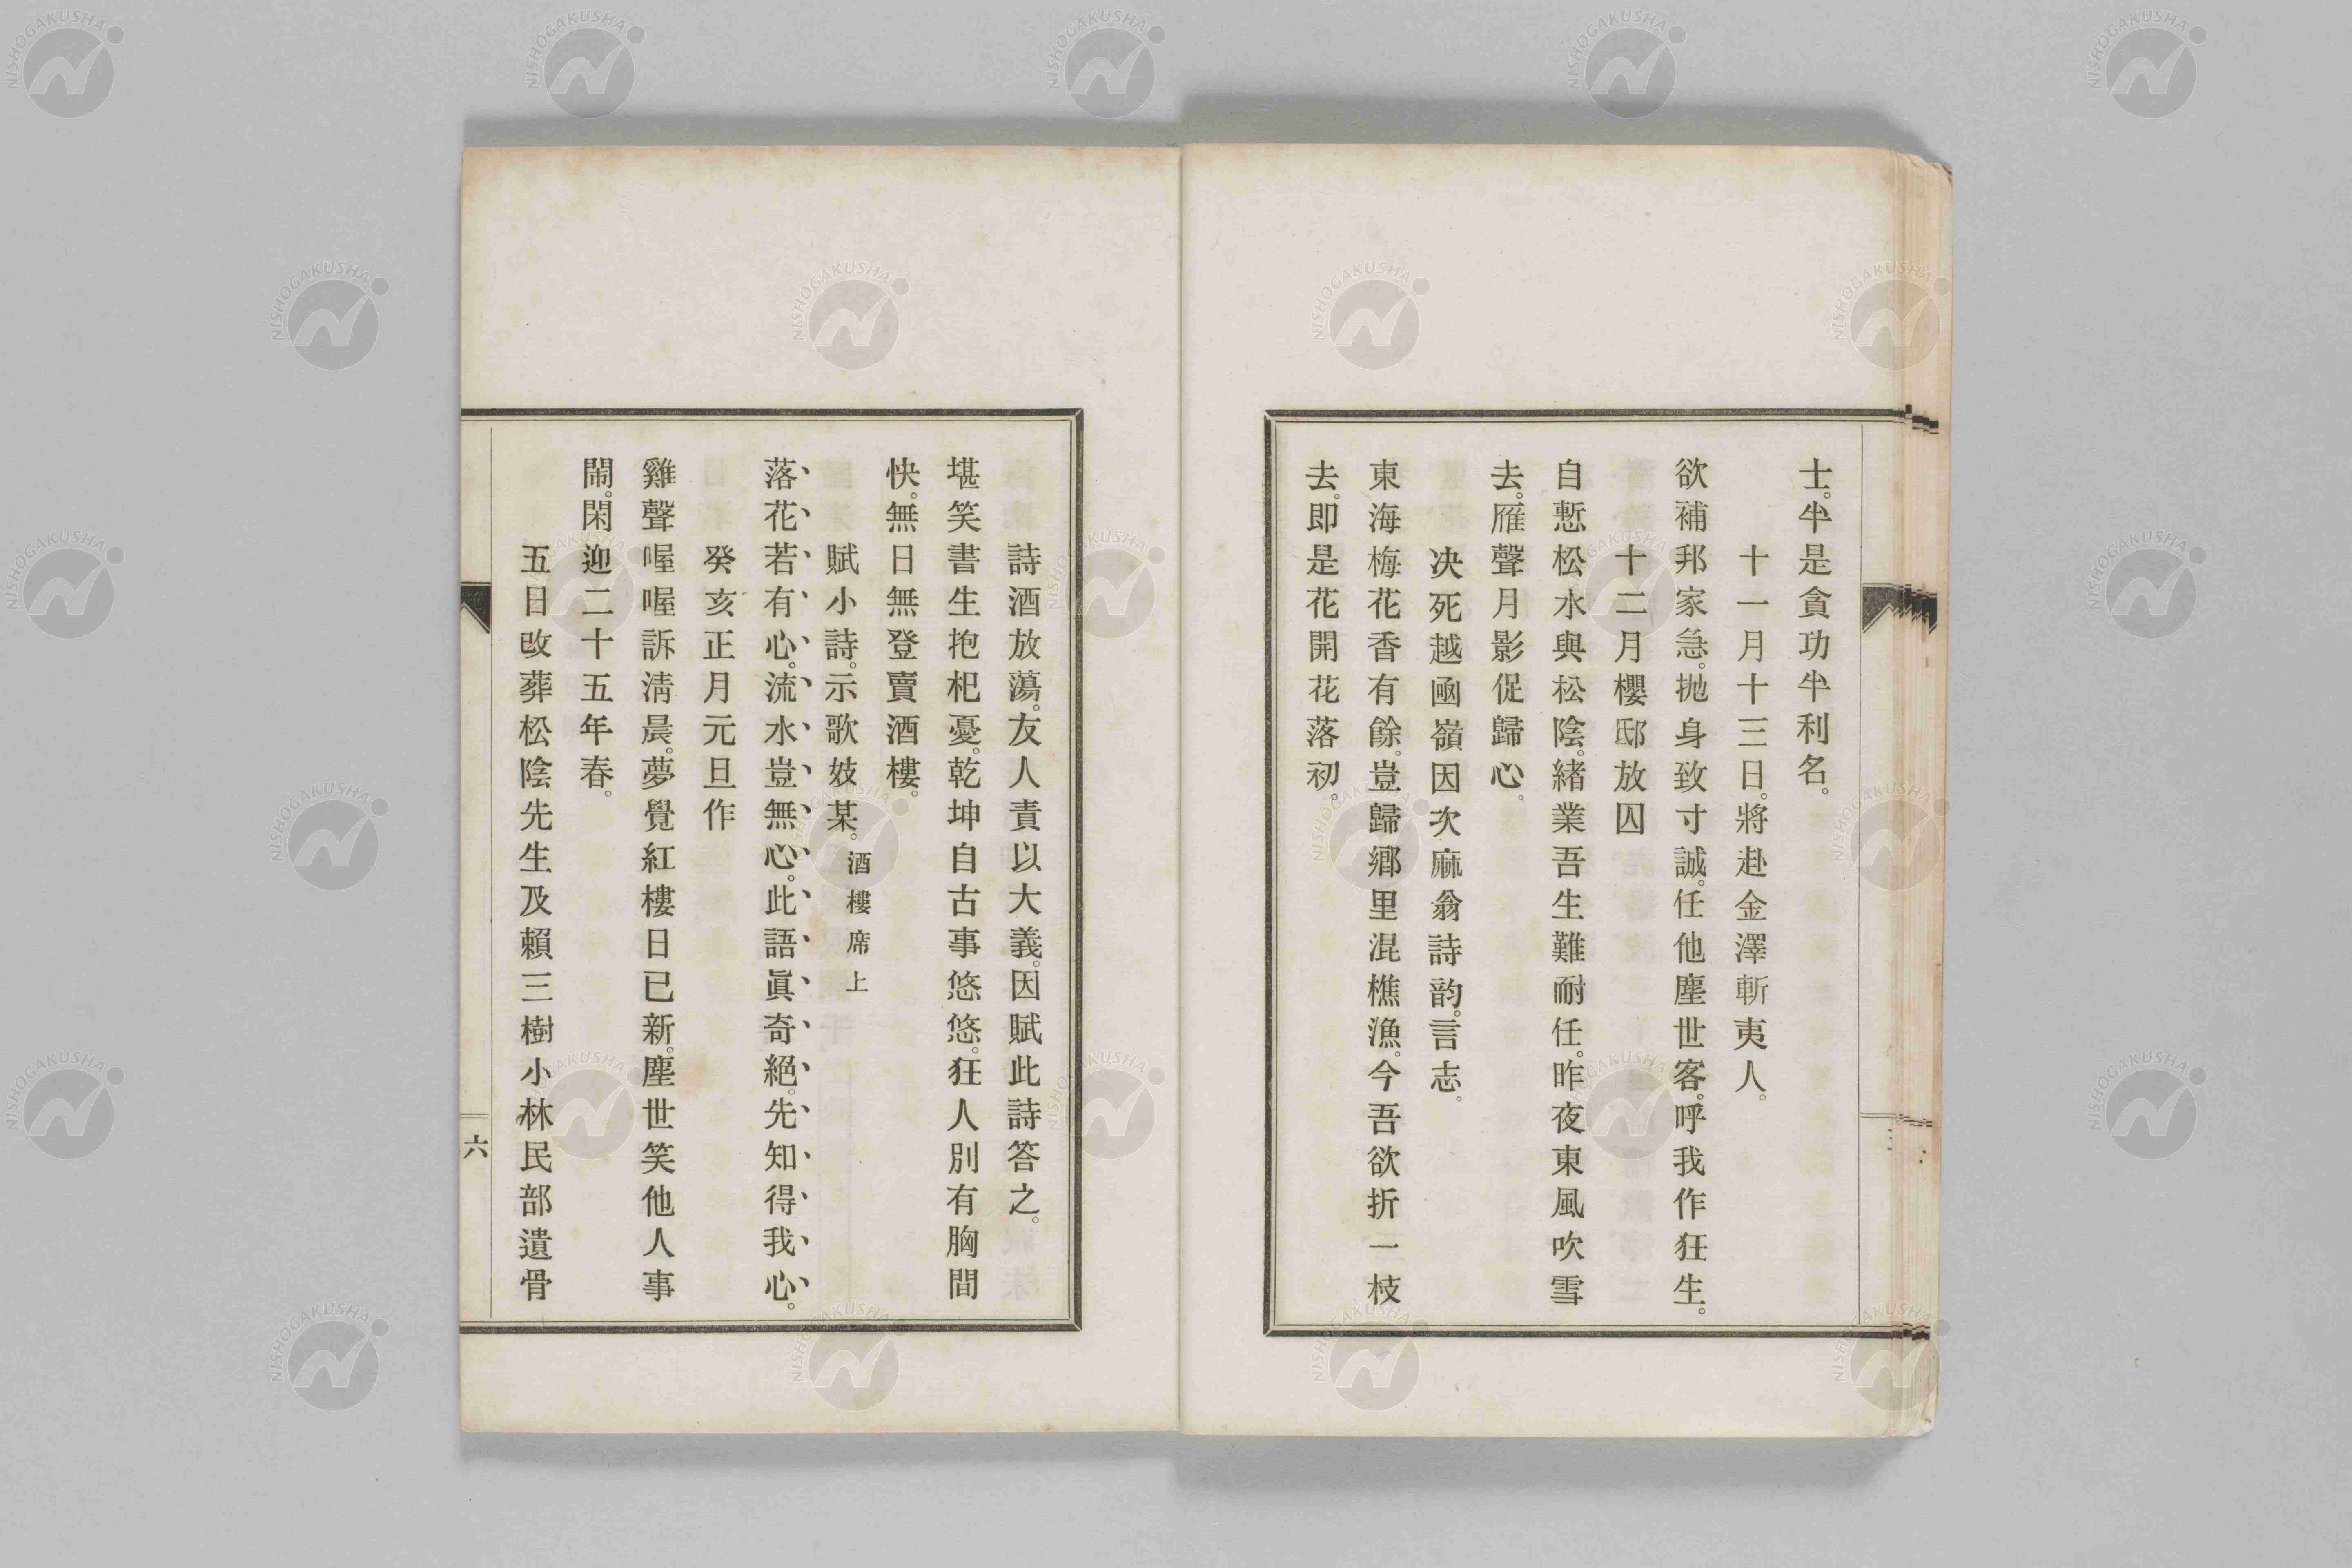 士。半是貪功半利名。
十一月十三日。將赴金澤斬夷人。
欲補邦家急。拋身致寸誠。任他塵世客。呼我作狂生。
十二月櫻邸放囚
自慙松水與松陰。緒業吾生難耐任。昨夜東風吹雪
去。雁聲月影促歸心。
决死越凾嶺因次麻翁詩韵。言志。
東海梅花香有餘。豈歸鄕里混樵漁。今吾欲折一枝
去。即是花開花落初。
詩酒放蕩。友人責以大義。因賦此詩答之。
堪笑書生抱杞憂。乾坤自古事悠悠。狂人別有胸間
快。無日無登賣酒樓。
賦小詩。示歌妓某。酒樓席上
落花若有心。流水豈無心。此語眞奇絕。先知得我心。
癸亥正月元旦作
雞聲喔喔訴淸晨。夢覺紅樓日已新。塵世笑他人事
鬧。閑迎二十五年春。
五日改葬松陰先生及賴三樹小林民部遺骨
六
NISHOGAKUSHA